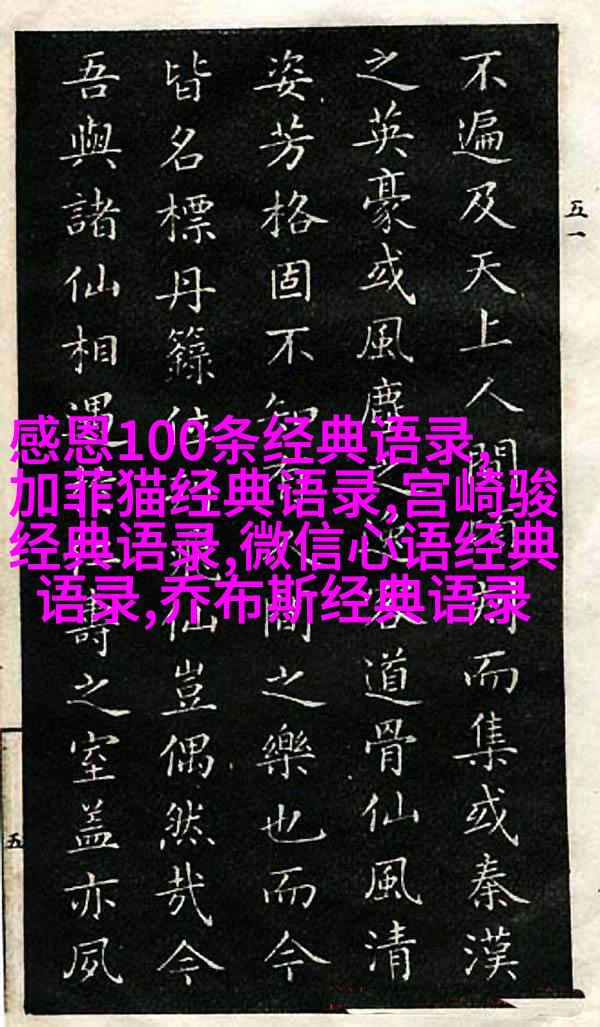 不遍及天上人間而集或秦漢
之英豪或風塵之逸客道骨仙風清
姿芳格固不知間之樂也而今
皆名標丹籙位仙豈偶然哉今
吾與諸仙相遇壽之室蓋亦夙
五一
五
感恩100条经典语录,
加菲猫经典语录,宫崎骏
经典语录,微信心语经典
语录,乔布斯经典语录